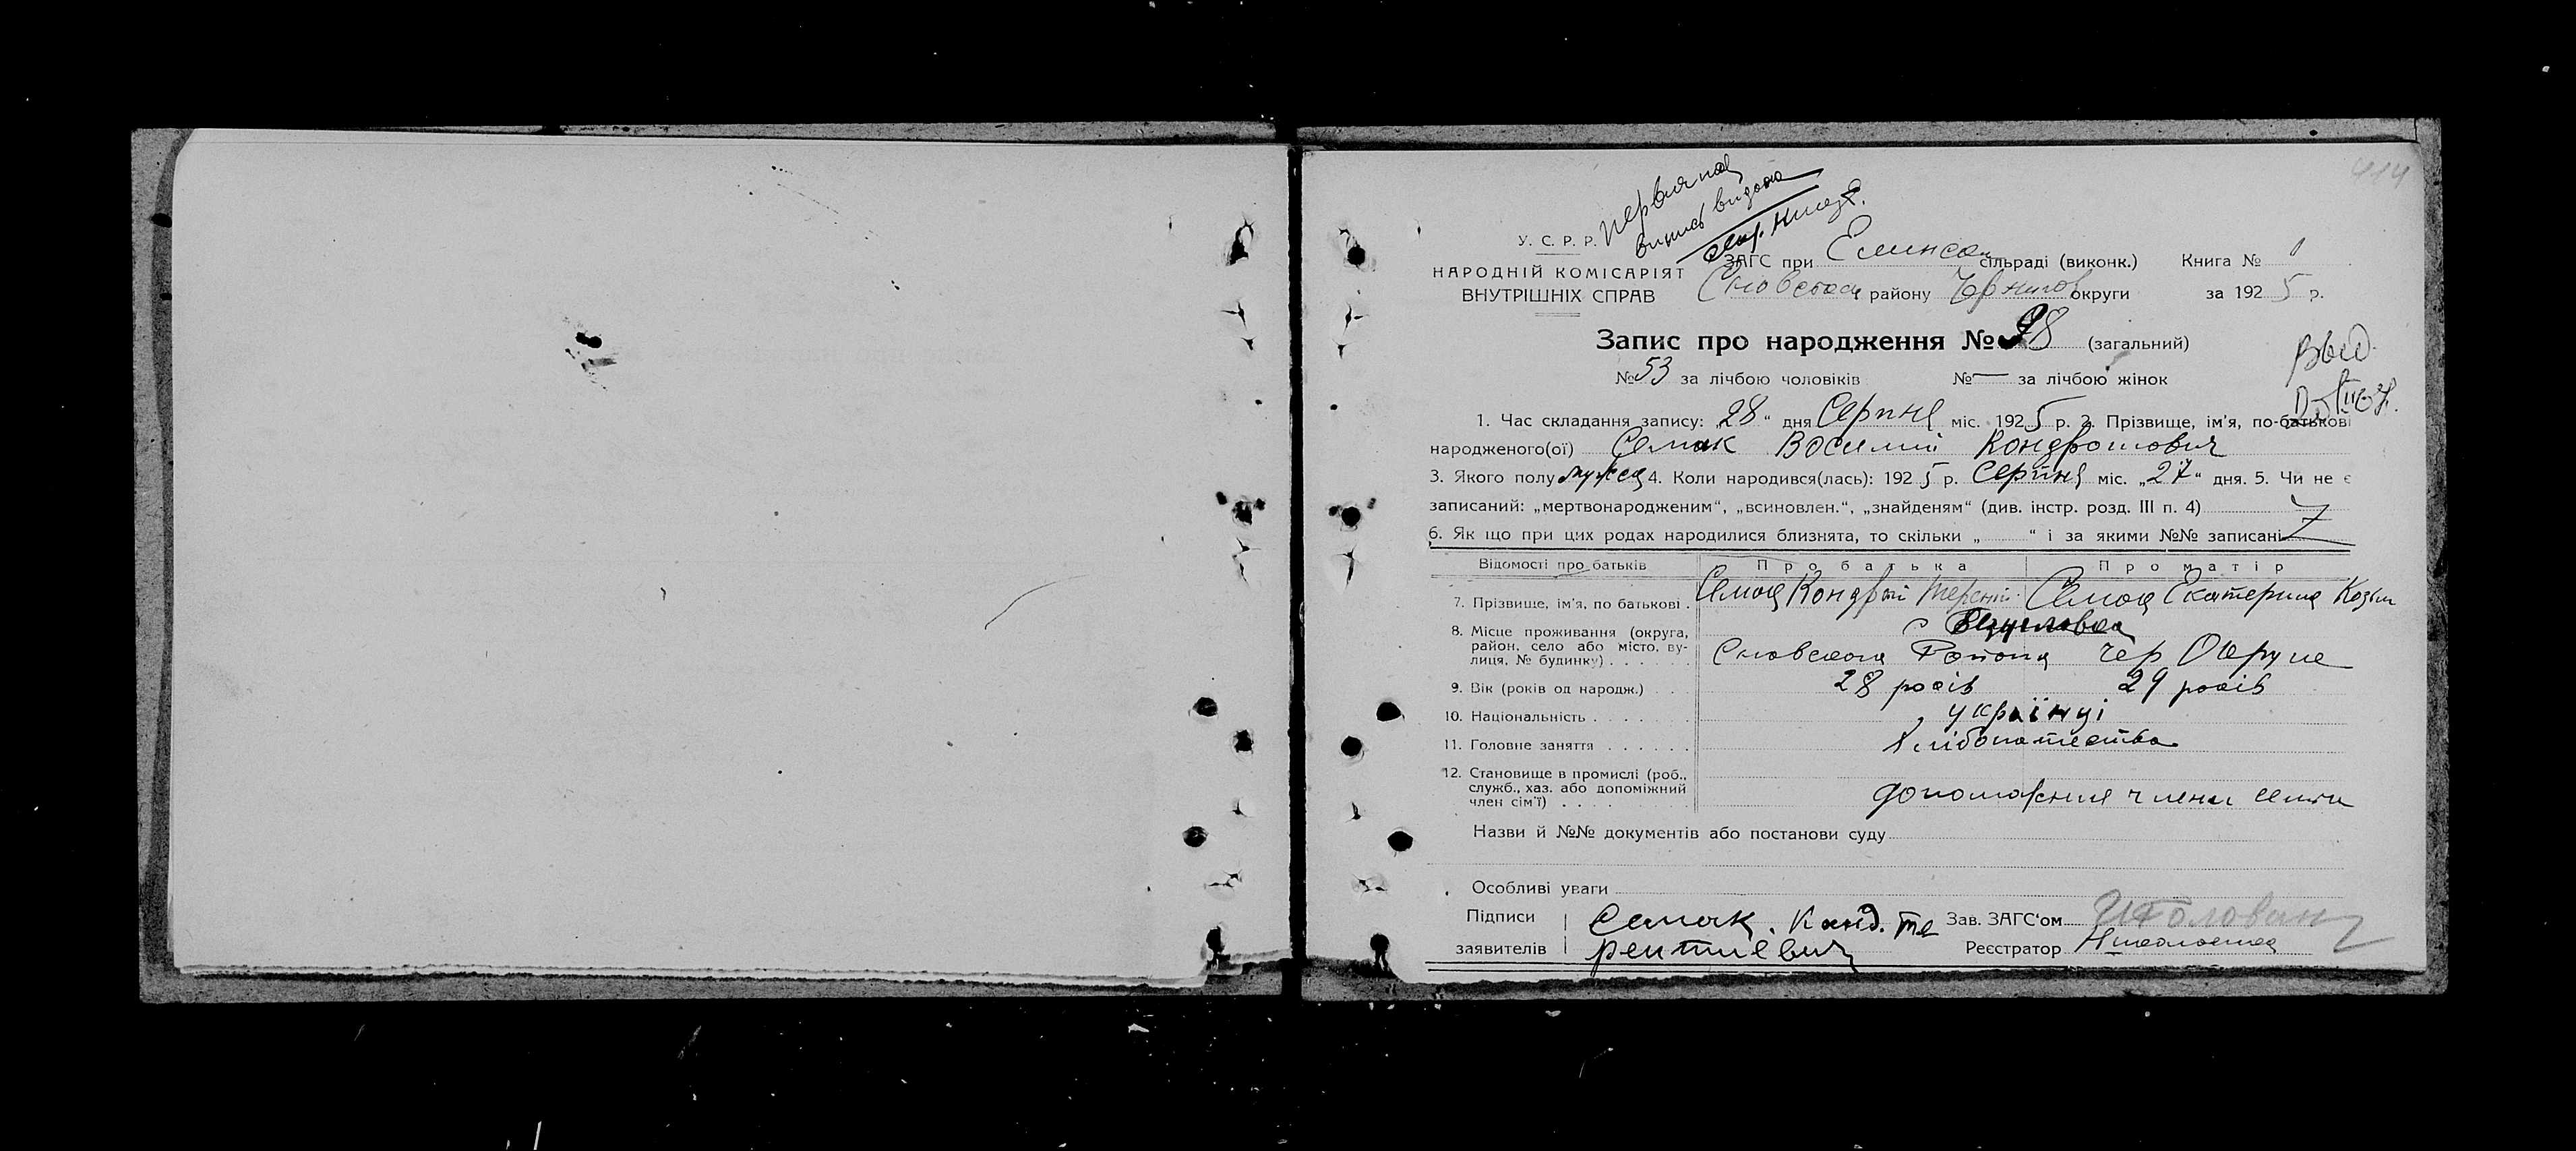 414
Первяна
выпись видана
У. С. Р. Р.
НАРОДНІЙ КОМІСАРІЯТ
ВНУТРІШНІХ СПРАВ
ЗАГС при Елинск сільраді (виконк.) Книга № 1
Сновском району Чернигов округи за 1925 р.
Запис про народження № 98 (загальний)
№ 53 за лічбою чоловіків № — за лічбою жінок
Выд
1. Час складання запису: „28“ дня Серпня міс. 1925 р. 2. Прізвище, ім'я, по-батькові
народженого(ої) Семак Василий Кондратович
3. Якого полу мужск 4. Коли народився(лась): 1925 р. Серпня міс. „27“ дня. 5. Чи не є
записаний: „мертвонародженим“, „всиновлен.“, „знайденям“ (див. інстр. розд. III п. 4)
6. Як що при цих родах народилися близнята, то скільки „ “ і за якими №№ записані
Відомості про батьків Про батька Про матір
7. Прізвище, ім'я, по батькові . Семак Кондрат Терент Семак Екатерина Козьм
8. Місце проживання (округа,
район, село або місто, ву-
лиця, № будинку) . . . . . .
с
Сновского Района Чер Округе
9. Вік (років од народж.) . . . 28 років 29 років
10. Національність . . . . . . . українці
11. Головне заняття . . . . . . Хлібопашество
12. Становище в промислі (роб.,
служб., хаз. або допоміжний
член сім'ї) . . . .
допоможние члени семьи
Назви й №№ документів або постанови суду
Особливі уваги
Підписи Семак. Конд. Те Зав. ЗАГС'ом Головач
заявителів рентиевич Реєстратор